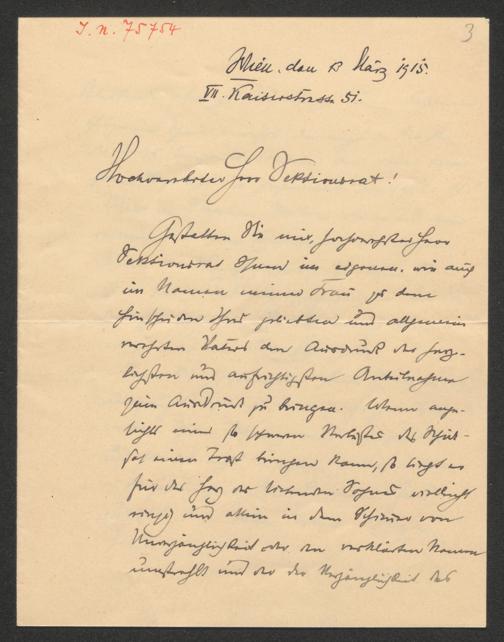 I. n. 75754
3
Wien, den 13 März 1915.
VII. Kaiserstrasse 51.
Hochverehrter Herr Sektionsrat!
Gestatten Sie mir, hochverehrter Herr
Sektionsrat Ihnen im eigenen, wie auch
im Namen meiner Frau zu dem
Hinscheiden Ihres geliebten und allgemein
verehrten Vaters den Ausdruck der herz-
lichsten und aufrichtigsten Anteilnahme
zum Ausdruck zu bringen. Wenn ange-
sichts eines so schweren Verlustes des Schick-
sal einen Trost bringen kann, so liegt er
für das Herz des liebenden Sohnes vielleicht
einzig und allein in dem Schimmer von
Unvergänglichkeit der den verklärten Namen
umstrahlt und der die Vergänglichkeit des